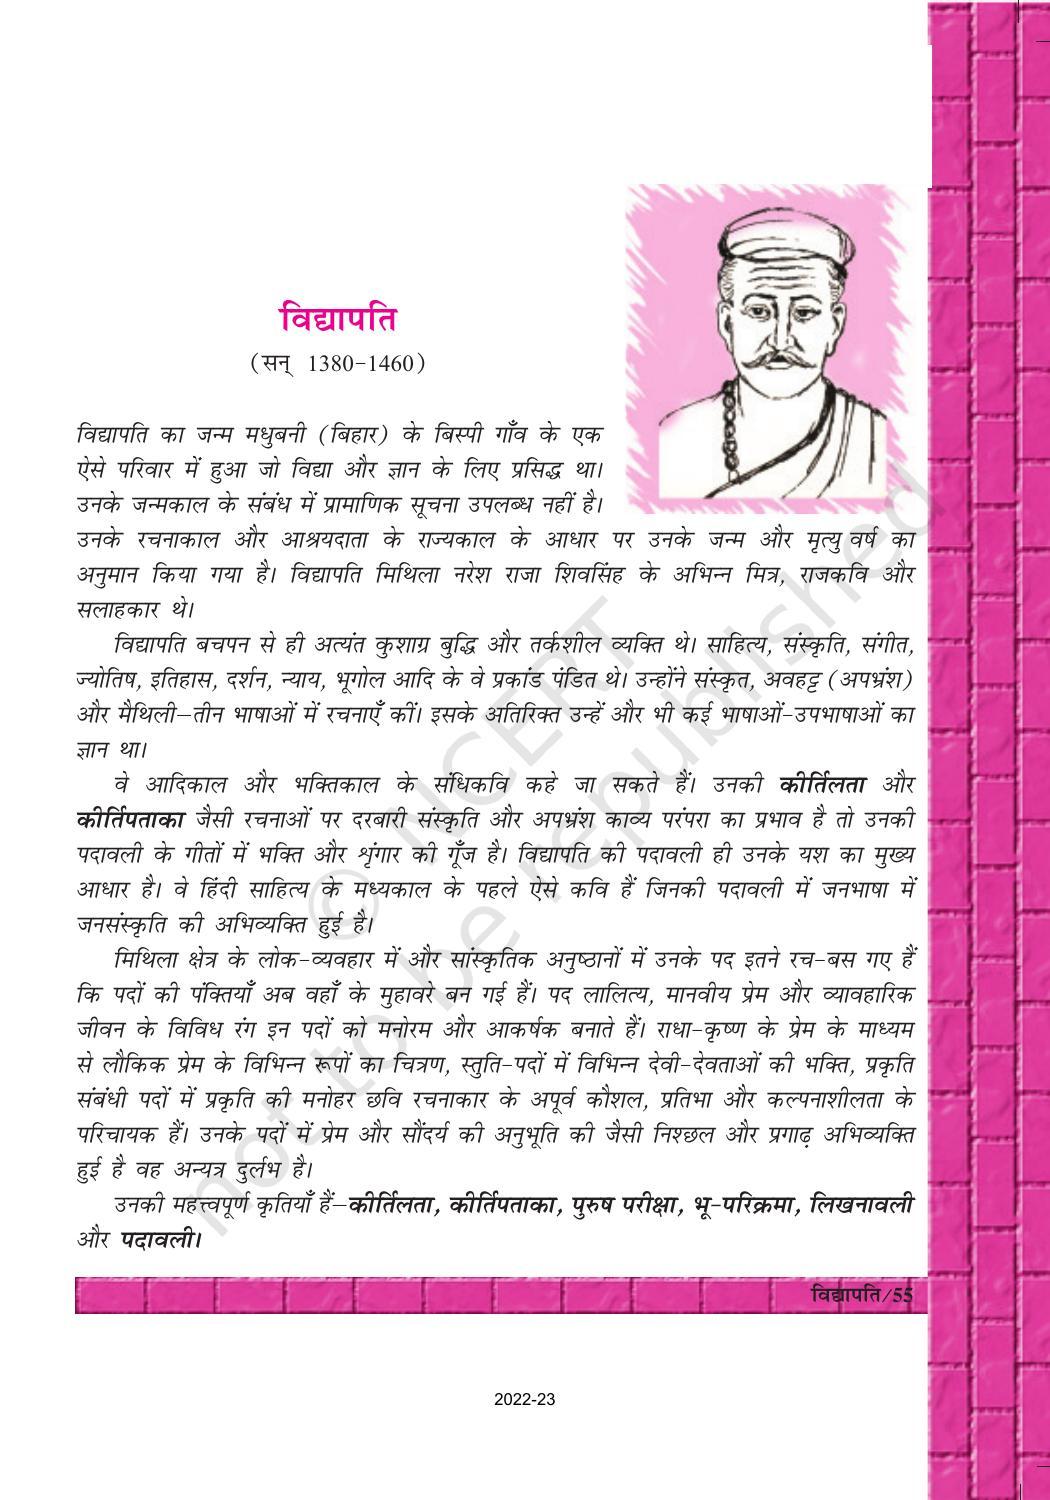 विद्यापति
(सन् 1380-1460)
विद्यापति का जन्म मधुबनी (बिहार) के बिस्पी गाँव के एक
ऐसे परिवार में हुआ जो विद्या और ज्ञान के लिए प्रसिद्ध था।
उनके जन्मकाल के संबंध में प्रामाणिक सूचना उपलब्ध नहीं है।
उनके रचनाकाल और आश्रयदाता के राज्यकाल के आधार पर उनके जन्म और मृत्यु वर्ष का
अनुमान किया गया है। विद्यापति मिथिला नरेश राजा शिवसिंह के अभिन्न मित्र, राजकवि और
सलाहकार थे।
विद्यापति बचपन से ही अत्यंत कुशाग्र बुद्धि और तर्कशील व्यक्ति थे। साहित्य, संस्कृति, संगीत,
ज्योतिष, इतिहास, दर्शन, न्याय, भूगोल आदि के वे प्रकांड पंडित थे। उन्होंने संस्कृत, अवहट्ट (अपभ्रंश)
और मैथिली–तीन भाषाओं में रचनाएँ कीं। इसके अतिरिक्त उन्हें और भी कई भाषाओं-उपभाषाओं का
ज्ञान था।
वे आदिकाल और भक्तिकाल के संधिकवि कहे जा सकते हैं। उनकी कीर्तिलता और
कीर्तिपताका जैसी रचनाओं पर दरबारी संस्कृति और अपभ्रंश काव्य परंपरा का प्रभाव है तो उनकी
पदावली के गीतों में भक्ति और शृंगार की गूँज है। विद्यापति की पदावली ही उनके यश का मुख्य
आधार है। वे हिंदी साहित्य के मध्यकाल के पहले ऐसे कवि हैं जिनकी पदावली में जनभाषा में
जनसंस्कृति की अभिव्यक्ति हुई है।
मिथिला क्षेत्र के लोक-व्यवहार में और सांस्कृतिक अनुष्ठानों में उनके पद इतने रच-बस गए हैं
कि पदों की पंक्तियाँ अब वहाँ के मुहावरे बन गई हैं। पद लालित्य, मानवीय प्रेम और व्यावहारिक
जीवन के विविध रंग इन पदों को मनोरम और आकर्षक बनाते हैं। राधा-कृष्ण के प्रेम के माध्यम
से लौकिक प्रेम के विभिन्न रूपों का चित्रण, स्तुति-पदों में विभिन्न देवी-देवताओं की भक्ति, प्रकृति
संबंधी पदों में प्रकृति की मनोहर छवि रचनाकार के अपूर्व कौशल, प्रतिभा और कल्पनाशीलता के
परिचायक हैं। उनके पदों में प्रेम और सौंदर्य की अनुभूति की जैसी निश्छल और प्रगाढ़ अभिव्यक्ति
हुई है वह अन्यत्र दुर्लभ है।
उनकी महत्त्वपूर्ण कृतियाँ हैं–कीर्तिलता, कीर्तिपताका, पुरुष परीक्षा, भू-परिक्रमा, लिखनावली
और पदावली।
विद्यापति/55
2022-23
© NCERT
not to be republished